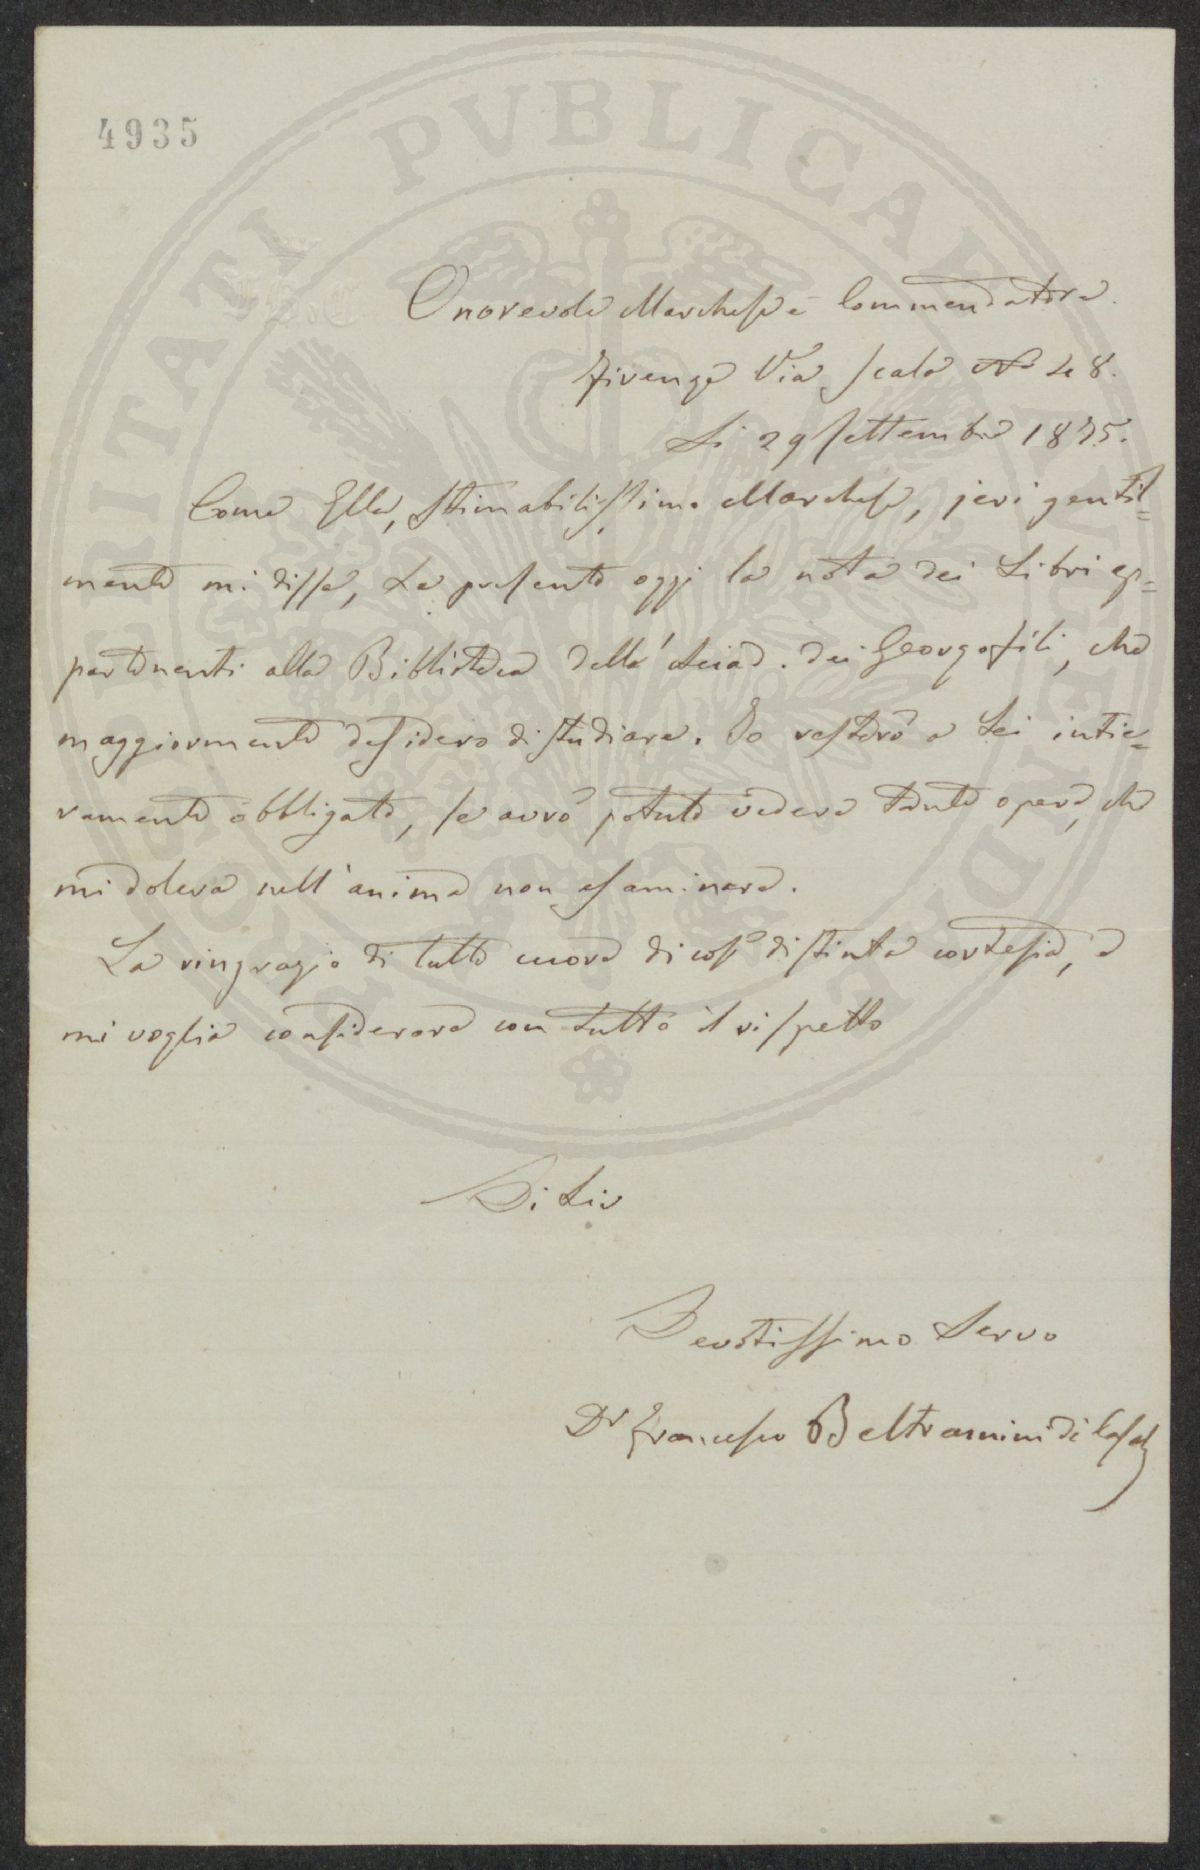 4935
PROSPERITATI PVBLICAE AVGENDAE
Onorevole Marchese e Commendatore
Firenze Via Scala No 48.
Li 29 Settembre 1875.
Come Ella, Stimabilissimo Marchese, jeri gentil=
mente mi disse, Le presento oggi la nota dei Libri ap=
partenenti alla Biblioteca dell' Acad. dei Georgofili, che
maggiormente desidero di studiare. Io resterò a Lei intie=
ramente obbligato, se avrò potuto vedere tante opere, che
mi doleva nell'anima non esaminare.
La ringrazio di tutto cuore di così distinta cortesia, e
mi voglia considerare con tutto il rispetto
Di Lei
Devotissimo Servo
Dr Francesco Beltramini di Casati